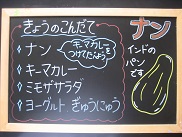 きょうのこんだて
ナン
キーマカレーを
つけてたべよう
キーマカレー
ミモザサラダ
ヨーグルト ぎゅうにゅう
ナン
インドの
パン
です